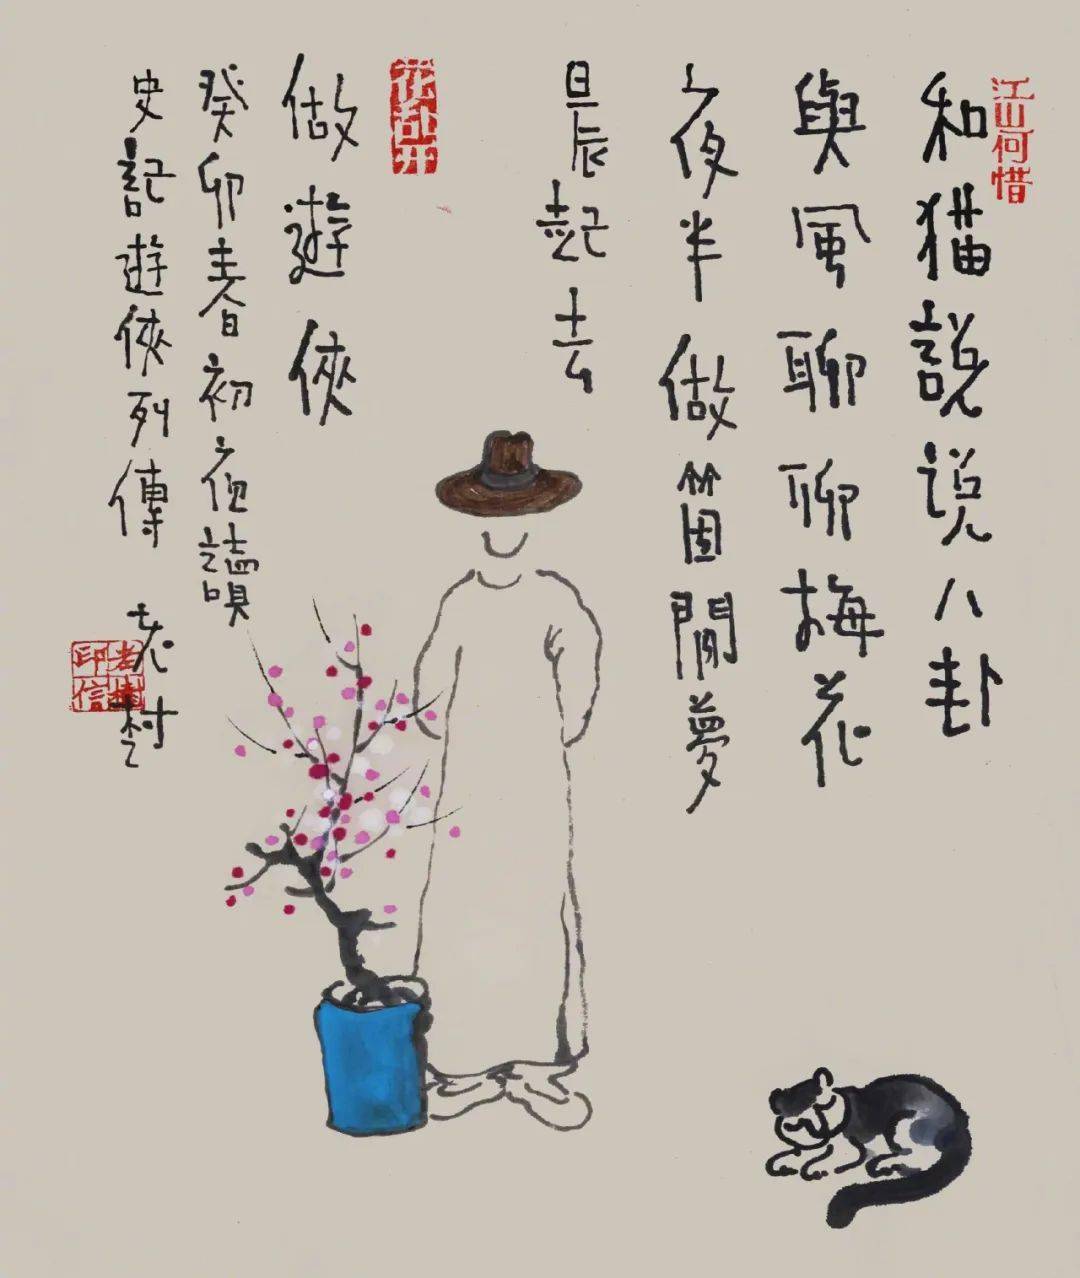 江山何惜
和猫說说八卦
與風聊聊梅花
夜半做箇閒夢
晨起去
花都开
做遊俠
癸卯春初夜讀
史記遊俠列傳 老树
老樹印信